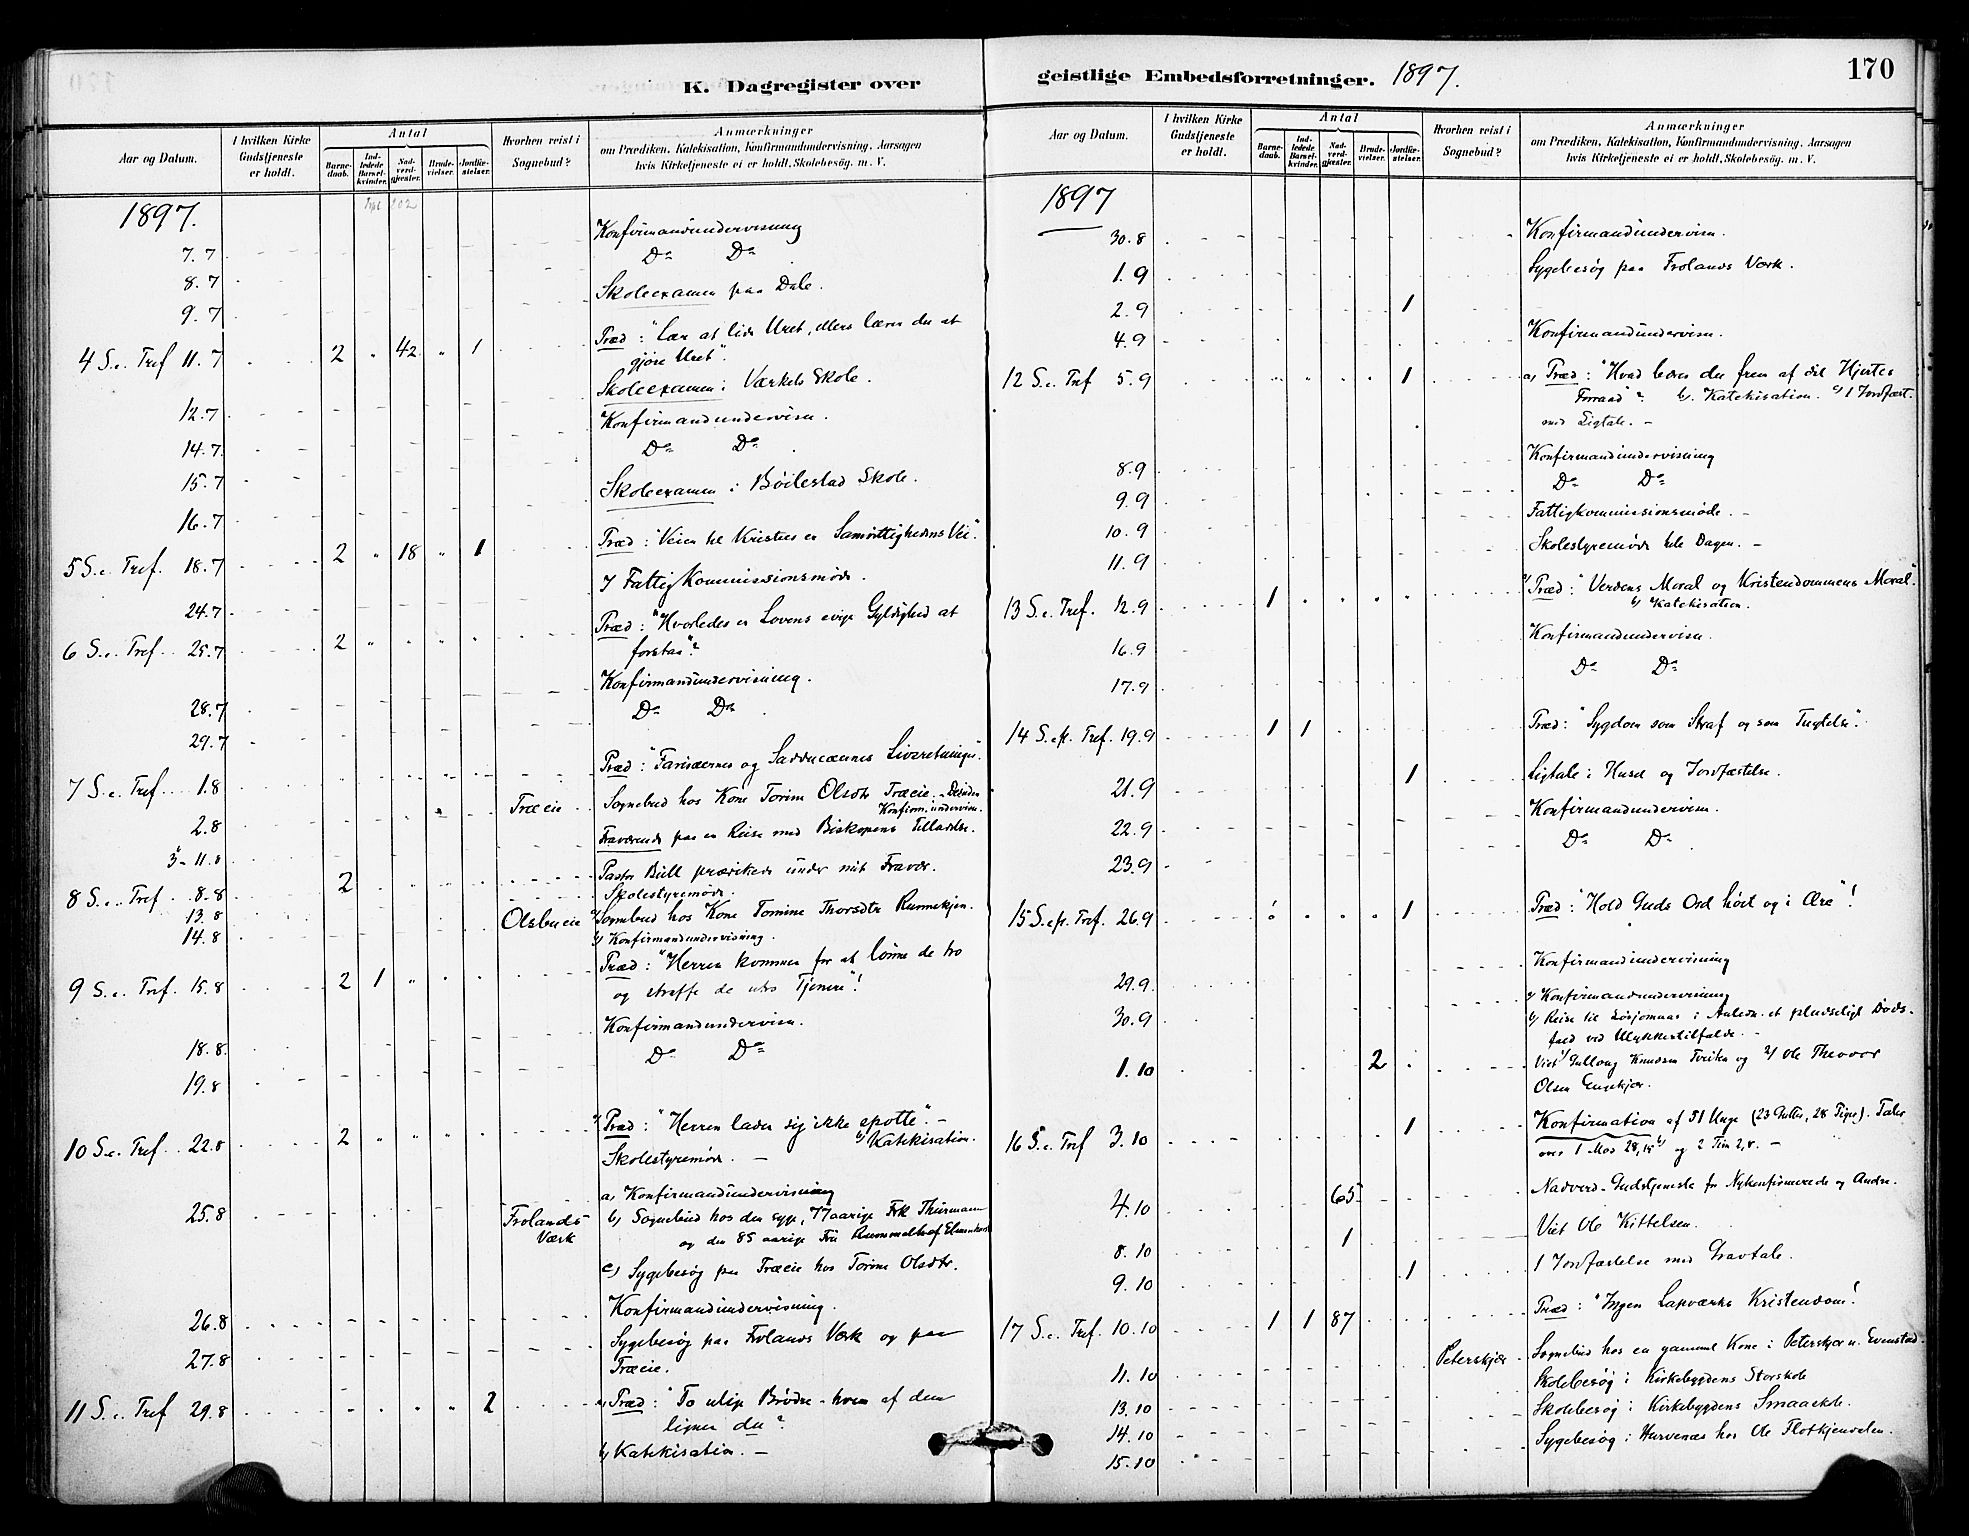 K. Dagregister over
Aar og Datum.
I hvilken Kirke Gudstjeneste er holdt.
Antal
Barne-daab.
Ind-ledede Barsel-kvinder.
Nad-verd-gjester.
Brude-vielser.
Jordfæ-stelser.
Hvorhen reist i Sognebud?
Anmærkninger
om Prædiken, Katekisation, Konfirmandundervisning, Aarsagen
hvis Kirketjeneste ei er holdt, Skolebesög. m. V.
1897.
7.7 Konfirmandundervisning
8.7 Do Do
9.7 Skoleexamen paa Dale.
4 S. e. Tref 11.7 2 " 42 " 1 Præd: "Lær at lide Uret, ellers lærer du at
gjöre Uret".
12.7 Skoleexamen i Værkets Skole.
14.7 Konfirmandundervisn.
15.7 Do Do
16.7 Skoleexamen i Böilestad Skole.
5 S. e. Tref. 18.7 2 " 18 " 1 Præd: "Veien til Kristus er Samvittighedens Vei".
24.7 Fattigkommissionsmöde.
6 S. e. Tref. 25.7 2 " " " " Præd: "Hvorledes er Lovens evige Gyldighed at
forstaa"?
28.7 Konfirmandundervisning.
29.7 Do Do
7 S. e. Tref. 1.8 Præd: "Farisæernes og Sadducæernes Livsretninger".
2.8 Træeie Sognebud hos Kone Torine Olsdtr Træeie. - Desuden
Konfirm.undervisn.
5-11.8 Fraværende paa en Reise med Biskopens Tilladelse.
8 S. e. Tref. 8.8 2 Pastor Bull prædikede under mit Fravær.
13.8 Skolestyremöde.
14.8 Olsbueie a) Sognebud hos Kone Tomine Thorsdtr
b) Konfirmandundervisning.
9 S. e. Tref. 15.8 2 1 " " " Præd: "Herren kommer for at lönne de tro
og straffe de utro Tjenere"!
18.8 Konfirmandundervisn.
19.8 Do Do
10 S. e. Tref. 22.8 2 " " " " a) Præd: "Herren lader sig ikke spotte". -
b) Katekisation.
Skolestyremöde. -
25.8 a) Konfirmandundervisning
Frolands Værk b) Sognebud hos den syge, 77 aarige Frk Thürmann
og den 85 aarige Fru
c) Sygebesög paa Træeie hos Torine Olsdtr.
26.8 Konfirmandundervisning.
27.8 Sygebesög paa Frolands Værk og paa
Træeie.
11 S. e. Tref 29.8 " " " " 2 a) Præd: "To ulige Brödre - hvem af dem
ligner du"?
b) Katekisation. -
geistlige Embedsforretninger. 1897.
170
Aar og Datum.
I hvilken Kirke Gudstjeneste er holdt.
Antal
Barne-daab.
Ind-ledede Barsel-kvinder.
Nad-verd-gjester.
Brude-vielser.
Jordfæ-stelser.
Hvorhen reist i Sognebud?
Anmærkninger
om Prædiken, Katekisation, Konfirmandundervisning, Aarsagen
hvis Kirketjeneste ei er holdt, Skolebesög. m. V.
1897
30.8 Konfirmandundervisn.
1.9 Sygebesög paa Frolands Værk.
2.9 1
4.9 Konfirmandundervisn.
12 S. e. Tref 5.9 " " " " 1 a) Præd: "Hvad bærer du frem af dit Hjertes
Forraad"? b) Katekisation. c) 1 Jordfæst.
med Ligtale. -
8.9 Konfirmandundervisning
9.9 Do Do
10.9 Fattigkommissionsmöde. -
11.9 Skolestyremöde hele Dagen. -
13 S. e. Tref. 12.9 1 " " " " a) Præd: "Verdens Moral og Kristendommens Moral".
b) Katekisation.
16.9 Konfirmandundervisn.
17.9 Do Do
14 S. ef. Tref. 19.9 1 1 Præd: "Sygdom som Straf og som Tugtelse".
21.9 1 Ligtale i Huset og Jordfæstelse.
22.9 Konfirmandundervisn.
23.9 Do Do
15 S. ef. Tref. 26.9 1 Præd: "Hold Guds Ord höit og i Ære"!
29.9 Konfirmandundervisning
30.9 a) Konfirmandundervisning
b) Reise til i Anledn. et pludseligt Döds-
fald ved Ulykkestilfælde. -
1.10 2 Viet 1) Gullaug Knudsen og 2) Ole Theodor
Olsen Engekjær.
16 S. e. Tref 3.10 1 Konfirmation af 51 Unge (23 Gutter, 28 Piger). Taler
over 1 Mos 28,15 og 2 Tim 2,8. -
4.10 65 Nadverd-Gudstjeneste for Nykonfirmerede og Andre.
8.10 1 Viet Ole Kittelsen.
9.10 1 1 Jordfæstelse med Gravtale.
17 S. e. Tref. 10.10 1 1 87 Præd: "Ingen Lapværks Kristendom"!
11.10 Peterskjær Sognebud hos en gammel Kone i Peterskjær u. Evenstad.
13.10 Skolebesög i Kirkebygdens Storskole
14.10 Skolebesög i Kirkebygdens Smaaskole.
15.10 Sygebesög i Hurvenæs hos Ole